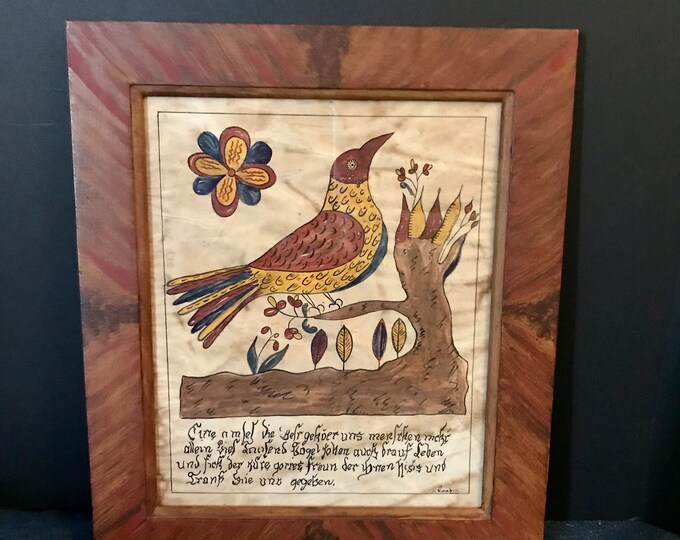 Eine amsel die Welt gehöer uns menschen nicht
allein viel Tausend Vögel sollen auch drauf Leben
und sich der güte gottes freun der ihnen Speis und
Trank wie uns gegeben.